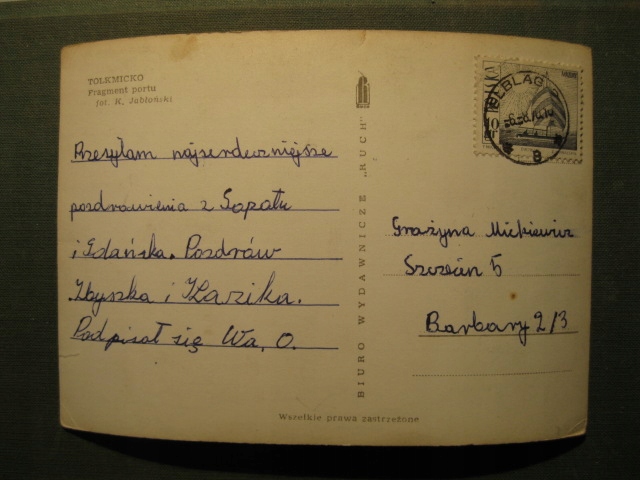 TOLKMICKO
Fragment portu
fot. K. Jabłoński
Przesyłam najserdeczniejsze
pozdrowienia z Sopotu
i Gdańska. Pozdrów
Zbyszka i Kazika.
Podpisał się Wa. O.
BIURO WYDAWNICZE „RUCH"
ELBLĄG
Grażyna Mickiewicz
Szczecin 5
Barbary 2/3
Wszelkie prawa zastrzeżone